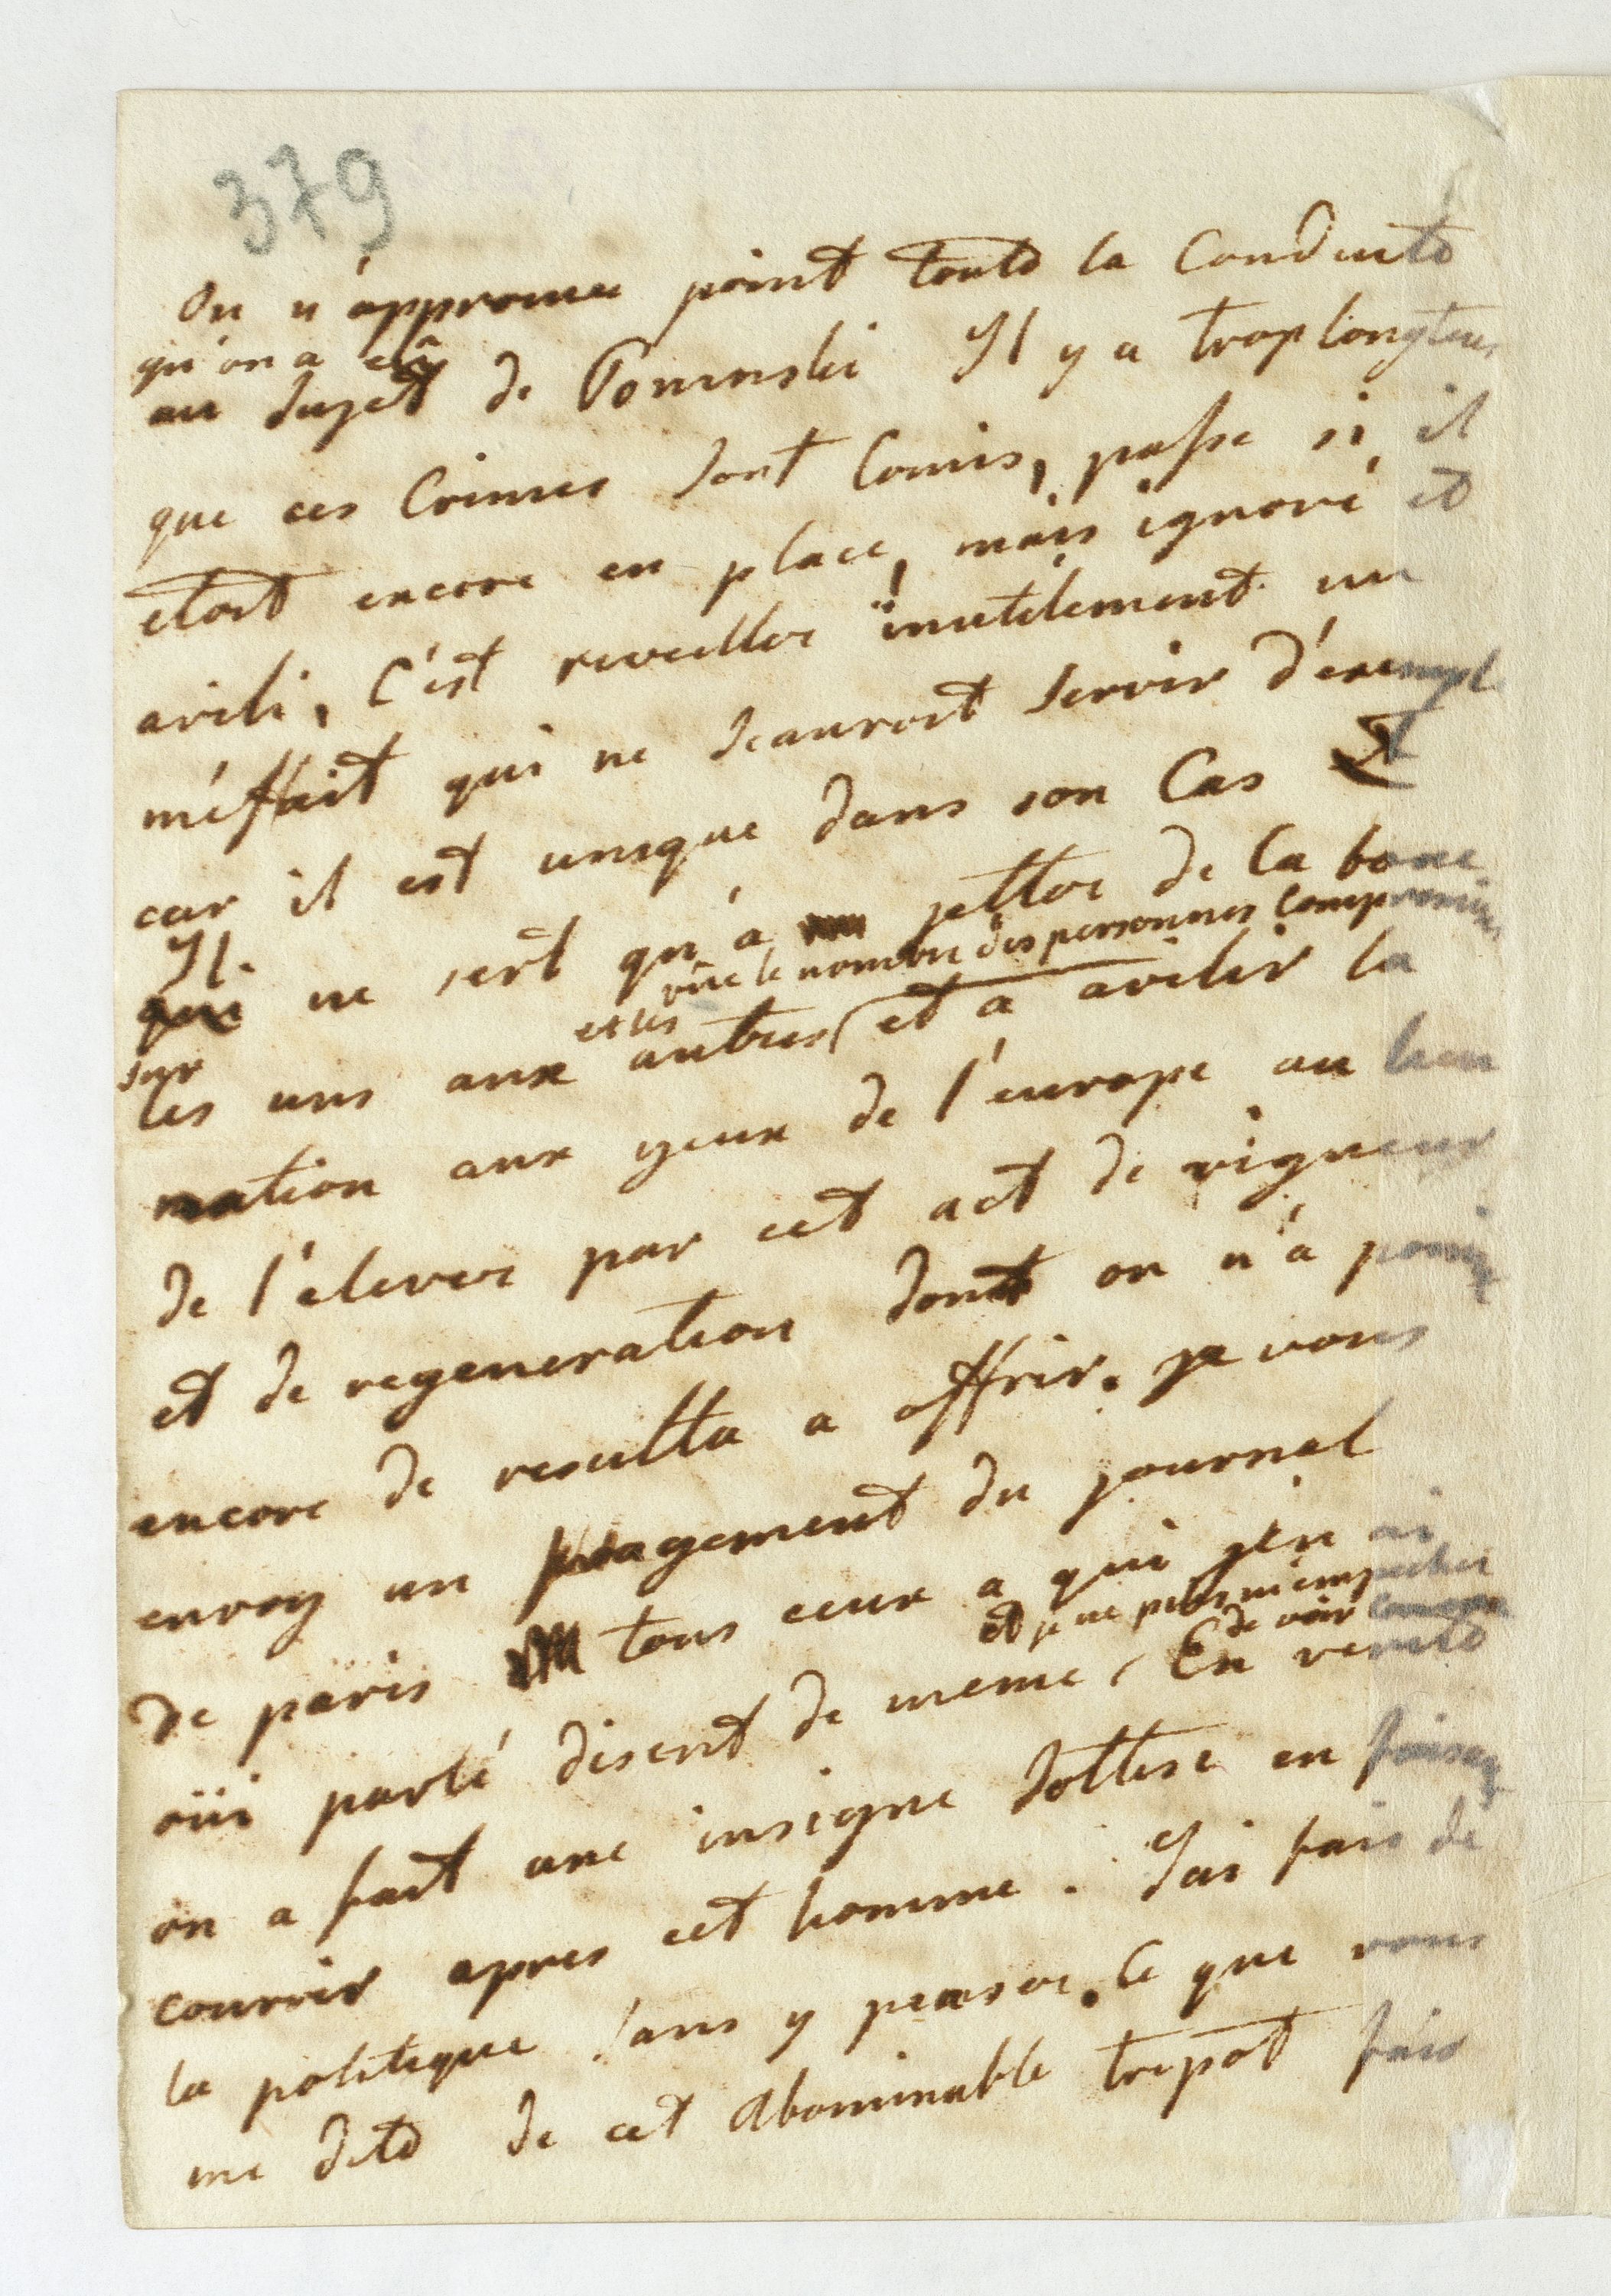 379
On n'approuve point toute la Conduite
qu'on a eû
au sujet de Poninski Il y a trop longtems
que ces Crimes sont Comis, passe si il
etoit encore en place, mais ignoré et
avili, C'est reveiller inutilement un
méffait qui ne scauroit servir d'exemple
car il est unique dans son Cas et
Il ne sert qu'a jetter de la boue
vûe le nombre des personnes compromises
sur les uns aux et les autres et a avilir la
nation aux yeux de l'europe au lieu
de l'elever par cet act de vigueur
et de regeneration dont on n'a point
encore de resulta a offrir. je vous
envoy un fragement du journal
de paris tous ceux a qui j'en ai
et je ne puis m'empecher
de voir comme
oüi parlé disent de meme, En verité
on a fait une insigne sottise en faisant
courrir apres cet homme. J'ai fais de
la politique sans y penser. Ce que vous
me dite de cet Abominable tripot fais